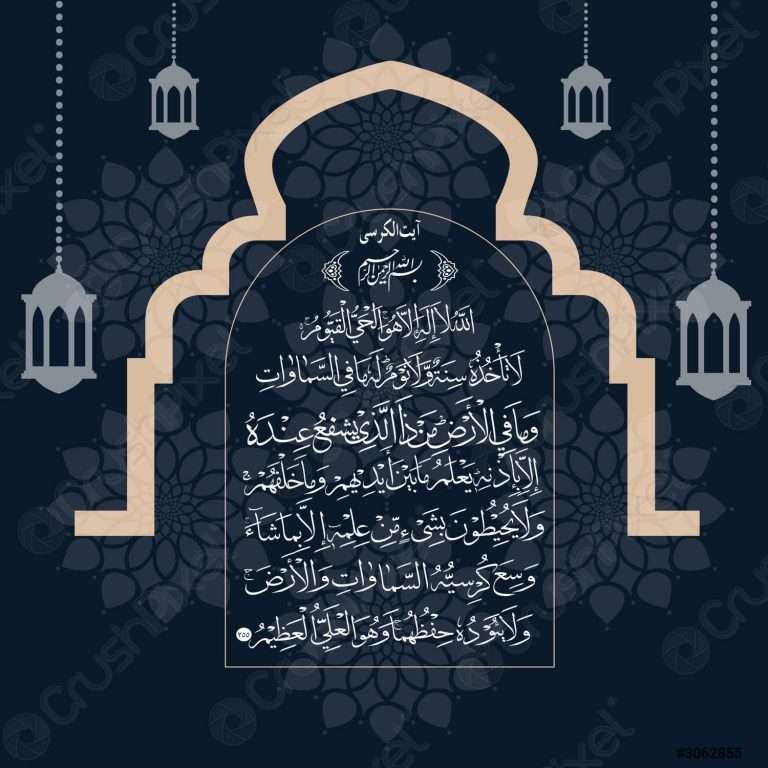 آیت الکرسی
بسم الله الرحمن الرحيم
اللَّهُ لَا إِلَٰهَ إِلَّا هُوَ الْحَيُّ الْقَيُّومُ ۚ
لَا تَأْخُذُهُ سِنَةٌ وَّلَا نَوْمٌ ۚ لَهُ مَا فِي السَّمَاوَاتِ
وَمَا فِي الْأَرْضِ ۗ مَنْ ذَا الَّذِي يَشْفَعُ عِنْدَهُ
إِلَّا بِإِذْنِهِ ۚ يَعْلَمُ مَا بَيْنَ أَيْدِيهِمْ وَمَا خَلْفَهُمْ ۖ
وَلَا يُحِيطُونَ بِشَيْءٍ مِّنْ عِلْمِهِ إِلَّا بِمَا شَاءَ ۚ
وَسِعَ كُرْسِيُّهُ السَّمَاوَاتِ وَالْأَرْضَ ۖ
وَلَا يَئُودُهُ حِفْظُهُمَا ۚ وَهُوَ الْعَلِيُّ الْعَظِيمُ ٢٥٥
CrushPixel
#3062855